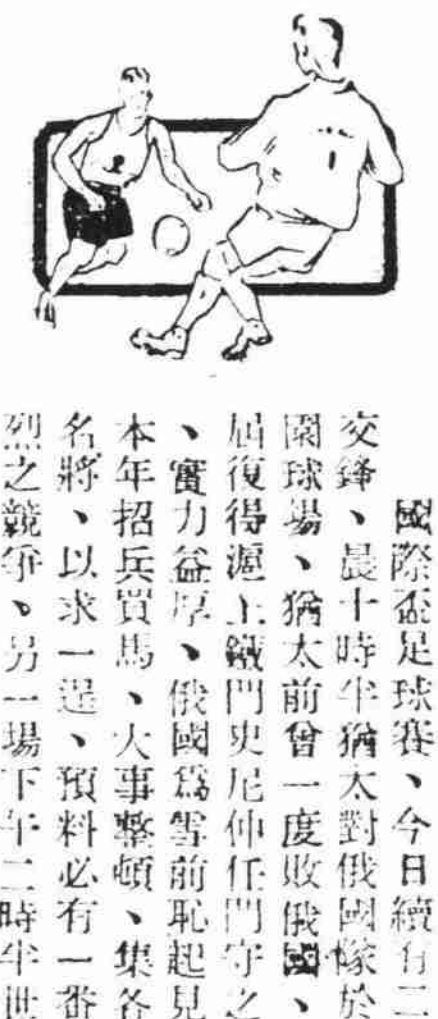 國際盃足球賽、今日續有二
交鋒、晨十時半猶太對俄國於
園球場、猶太前曾一度敗俄國、
屆復得滬上鐵門史尼仲任門守之
、實力益厚、俄國爲雪前恥起見
本年招兵買馬、大事整頓、集各
名將、以求一逞、預料必有一番
烈之競爭、另一場下午二時半世